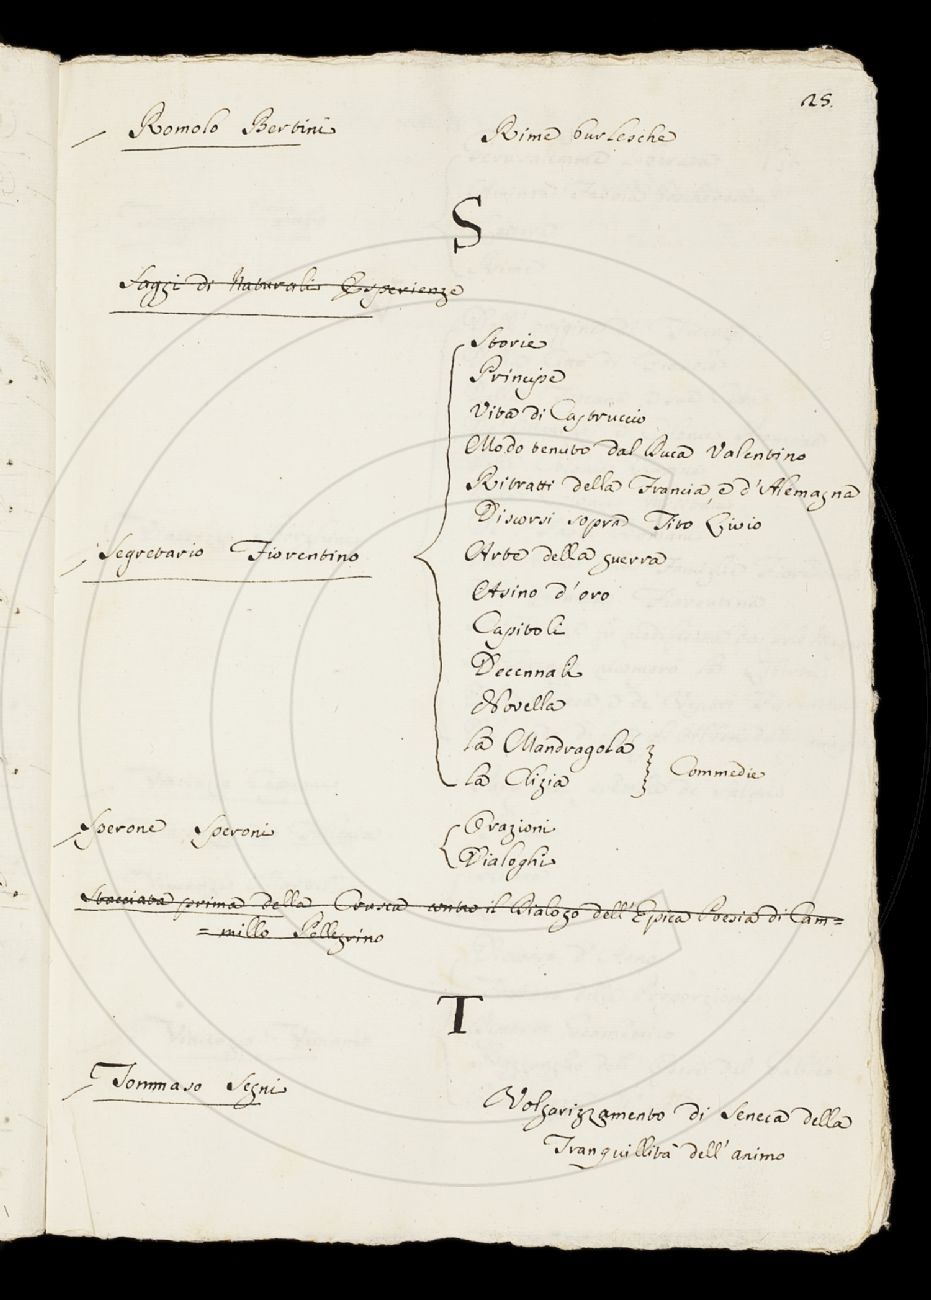 25.
Romolo Bertini Rime burlesche
S
Saggi di Naturali Esperienze
Storie
Principe
Vita di Castruccio
Modo tenuto dal Duca Valentino
Ritratti della Francia, e d'Alemagna
Discorsi sopra Tito Livio
Segretario Fiorentino Arte della guerra
Asino d'oro
Capitoli
Decennali
Novella
la Mandragola
la Clizia Commedie
Sperone Speroni Orazioni
Dialoghi
Stacciata prima della Crusca contro il Dialogo dell'Epica Poesia di Cam=
=millo Pellegrino
T
Tommaso Segni
Volgarizzamento di Seneca della
Tranquillità dell'animo